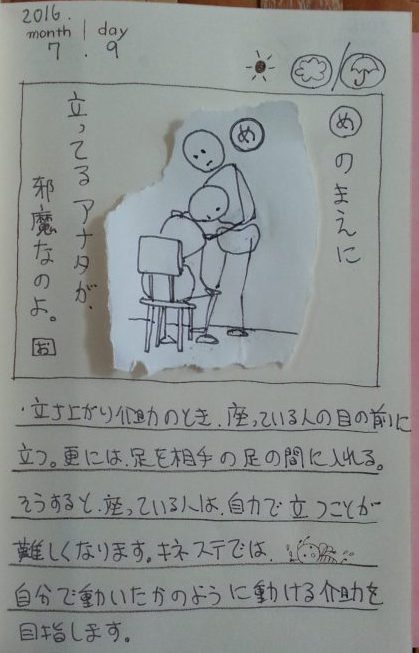 2016.
month | day
7 . 9
め のまえに
め
立ってる アナタが、
邪魔なのよ。 お
・立ち上がり介助のとき、座っている人の目の前に
立つ。更には、足を相手の足の間に入れる。
そうすると、座っている人は、自力で立つことが
難しくなります。キネステでは、
自分で動いたかのように動ける介助を
目指します。